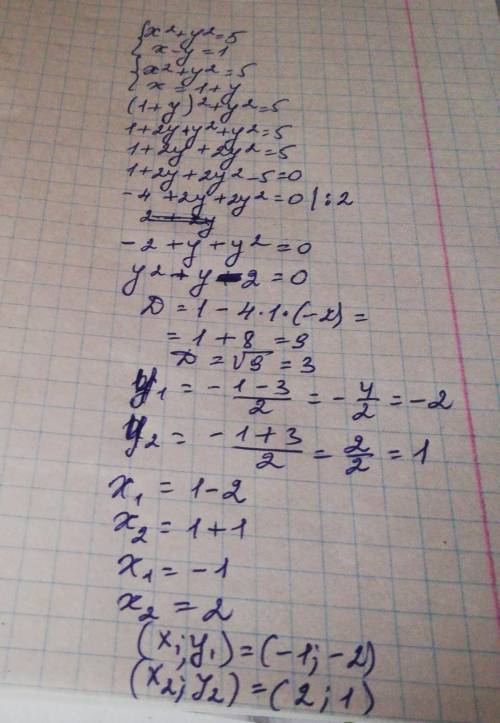 {x²+y²=5
x-y=1
{x²+y²=5
x=1+y
(1+y)²+y²=5
1+2y+y²+y²=5
1+2y+2y²=5
1+2y+2y²-5=0
-4+2y+2y²=0 |:2
2+2y
-2+y+y²=0
y²+y-2=0
D=1-4·1·(-2)=
=1+8=9
D=√9=3
y₁ = -(1-3)/2 = -4/2 = -2
y₂ = -(1+3)/2 = 2/2 = 1
x₁ = 1-2
x₂ = 1+1
x₁ = -1
x₂ = 2
(x₁;y₁)=(-1;-2)
(x₂;y₂)=(2;1)